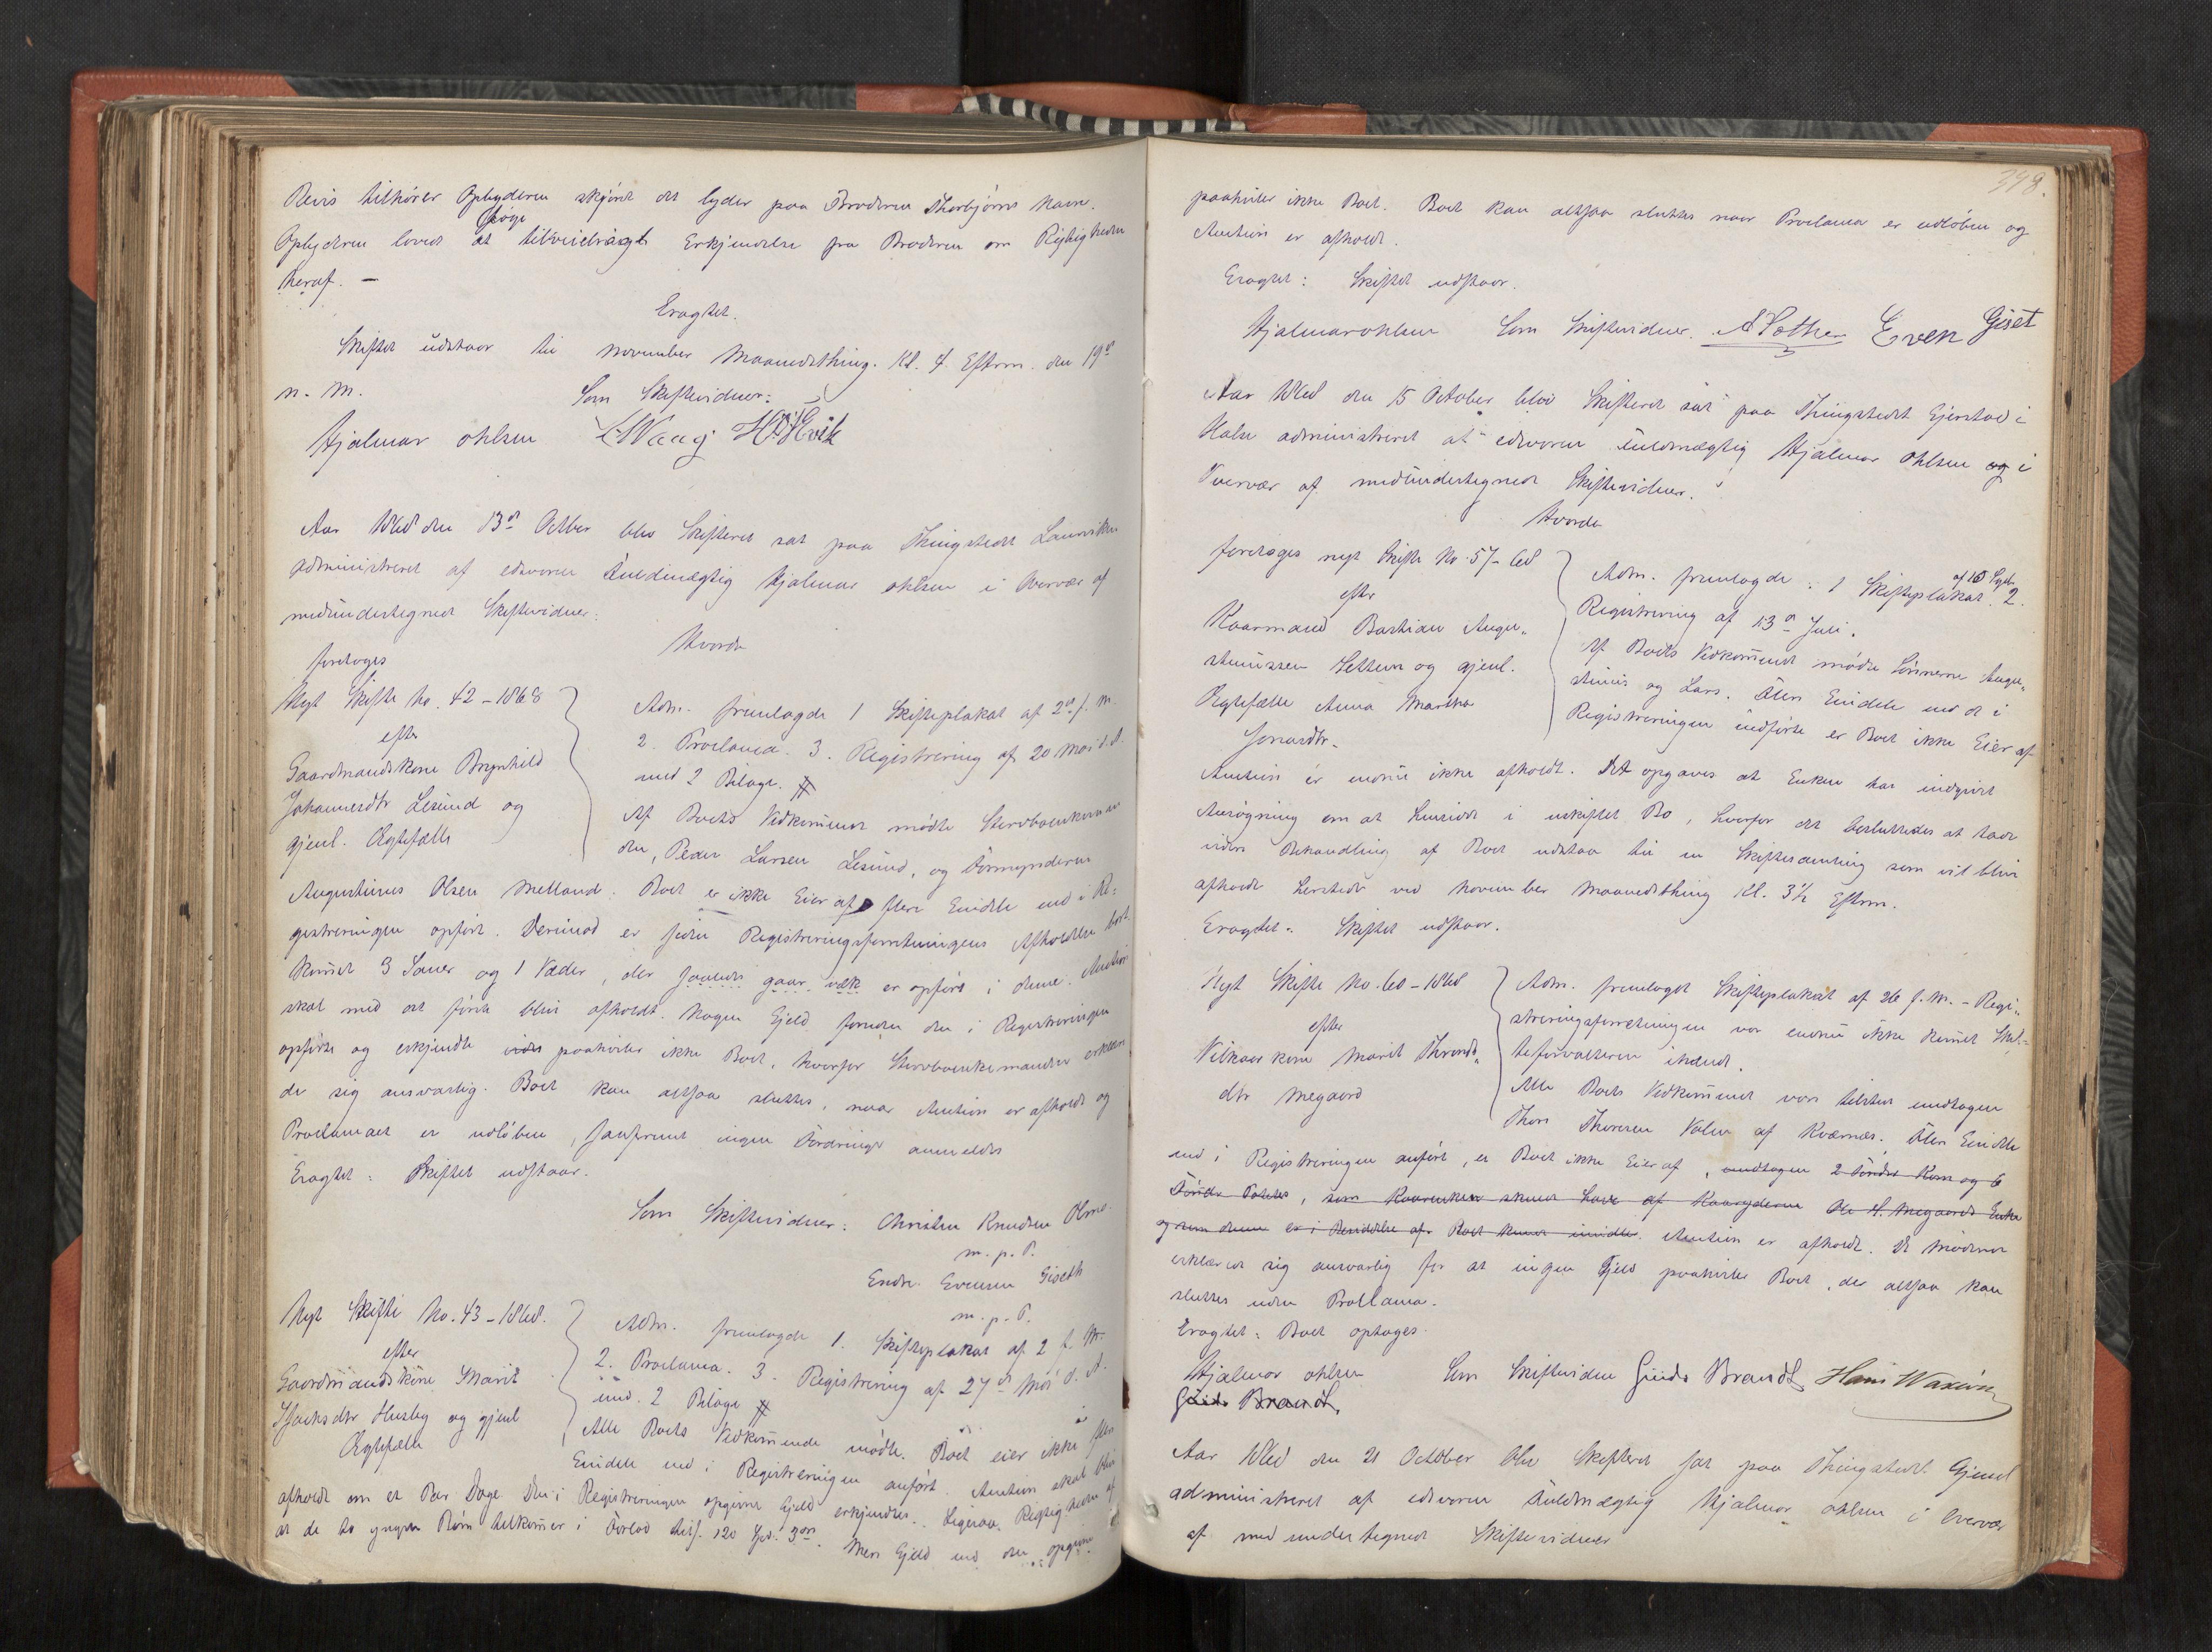 Revis tilhører Opbyderen skjønt det lyder paa Broderen Thorbjørns Navn.
Opbyderen lovede at søge tilveiebragt Erkjendelse fra Broderen om Rigtigheden
heraf. —
Eragtet.
Skiftet udstaar til November Maanedsthing. Kl. 4 Efterm. den 19de
n. M.
Som Skiftevidner:
Hjalmar Ohlsen
Aar 1868 den 13de Octber blev Skifteret sat paa Thingstedet Laurviken
administreret af edsvoren Fuldmægtig Hjalmar Ohlsen i Overvær af
medundertegnede Skiftevidner:
Hvorda
foretoges
Nyt Skifte No. 42 - 1868
efter
Gaardmandskone Brynhild
Johannesdtr Lesund og
gjenl. Ægtefælle
Adm. fremlagde 1 Skifteplakat af 2den f. M.
2. Proclama. 3. Registrering af 20 Mai d. A.
med 2 Bilage. #
Af Boets Vedkommende mødte Stervboenkeman
den, Peder Larsen Lesund, og Formynderen
Augustinus Olsen Melland. Boet er ikke Eier af flere Eiendele end i Re-
gistreringen opført. Derimod er siden Registreringsforretningens Afholdelse bort
kommet 3 Sauer og 1 Væder, der saaledes gaar væk er opført i denne. Auction
skal med det første blive afholdt. Nogen Gjeld foruden den i Registreringen
opførte og erkjendte paahviler ikke Boet, hvorfor Stervboenkemanden erklære
de sig ansvarlig. Boet kan altsaa sluttes, naar Auction er afholdt og
Proclamaet er udløben, saafremt ingen Fordringer anmeldes
Eragtet: Skiftet udstaar.
Som Skiftevidner: Christen Knudsen Olme.
m. p. P.
Endre Evensen Giseth
m. p. P.
Nyt Skifte No. 43 - 1868.
efter
Gaardmandskone Marit
Isaksdtr Husby og gjenl
Ægtefælle
Adm. fremlagde 1. Skifteplakat af 2 f. M.
2. Proclama. 3. Registrering af 27de Mai d. A.
med 2 Bilage #
Alle Boets Vedkommende mødte. Boet eier ikke flere
Eiendele end i Registreringen anført. Auction skal blive
afholdt om et Par Dage. Den i Registreringen opgivne Gjeld erkjendtes. Ligesaa Rigtigheden af
at de to yngste Børn tilkommer i Forlod tils. 120 Spd. Mere Gjeld end den opgivne
348.
paahviler ikke Boet. Boet kan altsaa sluttes naar Proclama er udløben og
Auction er afholdt.
Eragtet: Skiftet udstaar.
Hjalmar Ohlsen Som Skiftevidner. Even Giset
Aar 1868 den 15 October blev Skifteret sat paa Thingstedet Gjerstad i
Halse administreret af edsvoren Fuldmægtig Hjalmar Ohlsen og i
Overvær af medundertegnede Skiftevidner.
Hvorda
foretoges nyt Skifte No. 57 - 68
efter
Kaarmand Bastian Augu-
stinussen Settem og gjenl.
Ægtefælle Anna Martha
Jonasdtr.
Adm. fremlagde: 1 Skifteplakat af 10 Septbr 2.
Registrering af 13de Juli.
Af Boets Vedkommende mødte Sønnerne Augu-
stinus og Lars. Flere Eiendele end de i
Registreringen indførte er Boet ikke Eier af.
Auction er endnu ikke afholdt. Det opgaves at Enken har indgivet
Ansøgning om at hensidde i uskiftet Bo, hvorfor det besluttedes at lade
videre Behandling af Boet udstaa til en Skiftesamling som vil blive
afholdt hersteds ved November Maanedsthing Kl. 3½ Efterm.
Eragtet: Skiftet udstaar.
Nyt Skifte No. 60 - 1868
efter
Vilkaarskone Marit Thronds-
dtr Megaard
Adm. fremlagde Skifteplakat af 26 f. M. - Regi-
streringsforretningen var endnu ikke kommet Skif-
teforvalteren ihænde.
Alle Boets Vedkommende vare tilstede undtagen
Thore Thoresen Volen af Kværnæs. Flere Eiendele
end i Registreringen anført, er Boet ikke Eier af, undtagen 2 Tønder Korn og 6
Tønder Poteter, som Kaarenken skulde have af Kaaryderen Ole H. Megaards Enke
og som denne er i Besiddelse af. Auction er afholdt. De mødende
erklærede sig ansvarlig for at ingen Gjeld paahviler Boet, der altsaa kan
sluttes uden Proclama.
Eragtet: Boet optages.
Hjalmar Ohlsen Som Skiftevidne Guido Brandt, Hans Waxvin
Guido Brandt,
Aar 1868 den 21 October blev Skifteret sat paa Thingstedet Gjenel
administreret af edsvoren Fuldmægtig Hjalmar Ohlsen i Overvær
af medundertegnede Skiftevidner